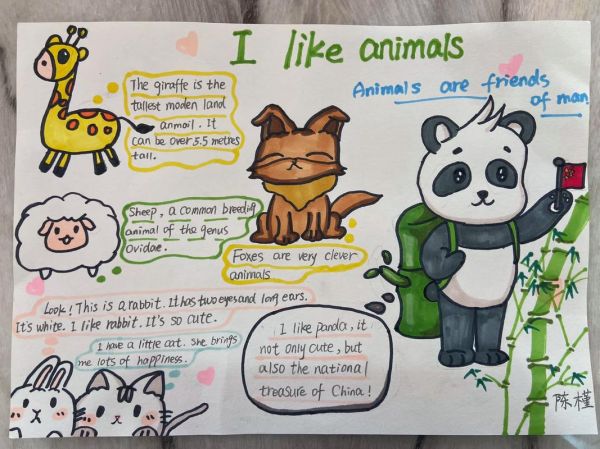 I like animals
Animals are friends
of man
The giraffe is the
tallest moden land
anmail. It
can be over 5.5 metres
tall.
Sheep, a common breeding
animal of the genus
Ovidae.
Foxes are very clever
animals
Look! This is a rabbit. It has two eyes and long ears.
It's white. I like rabbit. It's so cute.
I have a little cat. She brings
me lots of happiness.
I like panda, it
not only cute, but
also the national
treasure of China!
陈槿